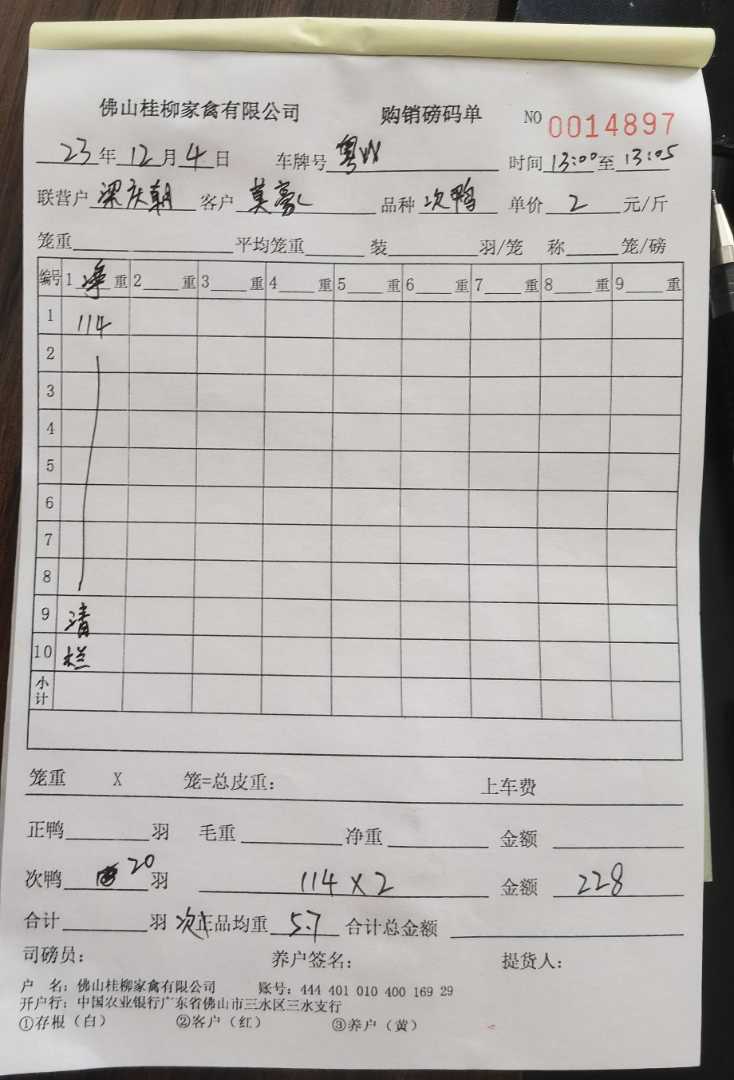 佛山桂柳家禽有限公司 购销磅码单 NO 0014897
23年12月4日 车牌号 粤W 时间 13:00至13:05
联营户 梁庆朝 客户 莫豪 品种 次鸭 单价 2 元/斤
笼重 平均笼重 装 羽/笼 称 笼/磅
编号 1 净 重 2 重 3 重 4 重 5 重 6 重 7 重 8 重 9 重
1 114
2
3
4
5
6
7
8
9 清
10 栏
小计
笼重 X 笼=总皮重: 上车费
正鸭 羽 毛重 净重 金额
次鸭 20 羽 114×2 金额 228
合计 羽 次 正品均重 5.7 合计总金额
司磅员: 养户签名: 提货人:
户 名: 佛山桂柳家禽有限公司 账号: 444 401 010 400 169 29
开户行: 中国农业银行广东省佛山市三水区三水支行
①存根（白） ②客户（红） ③养户（黄）